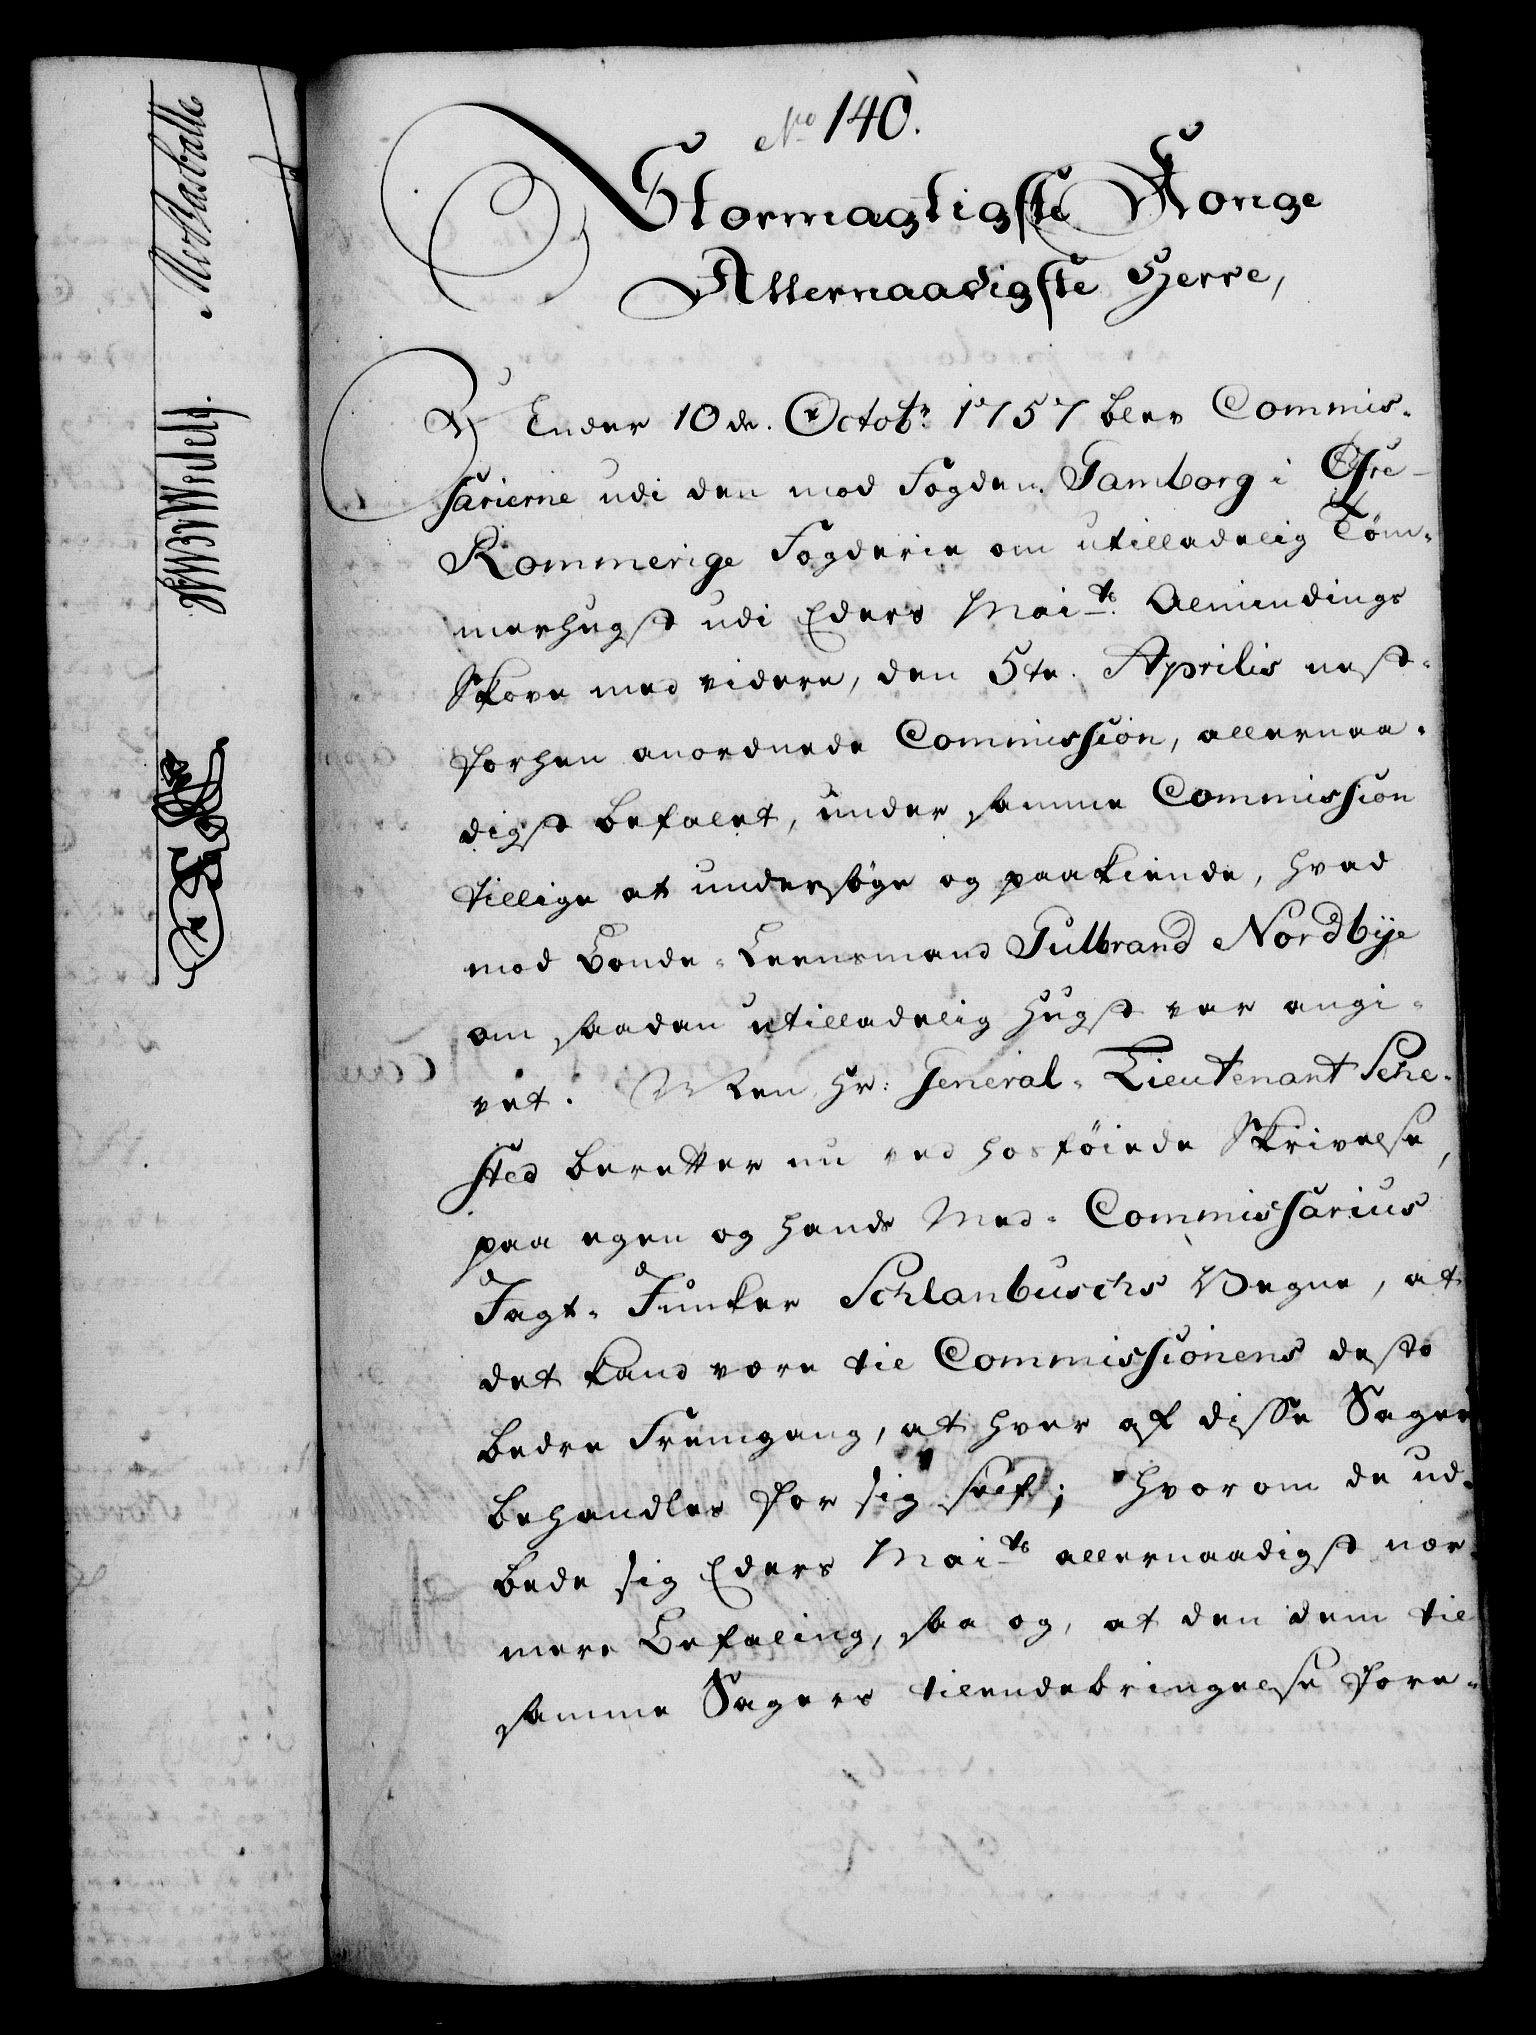 No 140.
Stormagtigste Konge
Allernaadigste Herre,
Under 10de. Octobr 1757 blev Commis-
sarierne udi den mod Fogden Tamborg i Øfre-
Rommerige Fogderie om utilladelig Tøm-
merhugst udi Eders Maits. Almindings
Skove med videre, den 5te. Aprilis nest-
forhen anordnede Commission, allernaa-
digst befalet, under samme Commission
tillige at undersøge og paakiende, hvad
mod Bonde-Leensmand Gulbrand Nordbÿe
om saadan utilladelig Hugst var angi-
vet. Men Hr: General-Lieutenant Sche-
sted beretter nu ved hosføiede Skrivelse,
paa egen og hands Med-Commissarius
Jagt-Junker Schlanbuschs Vegne, at
det kand være til Commissionens desto
bedre Fremgang, at hver af disse Sager
behandles for sig self; hvorom de ud-
bede sig Eders Maits allernaadigst nær-
mere Befaling, saa og, at den dem til
samme Sagers tilendebringelse fore-